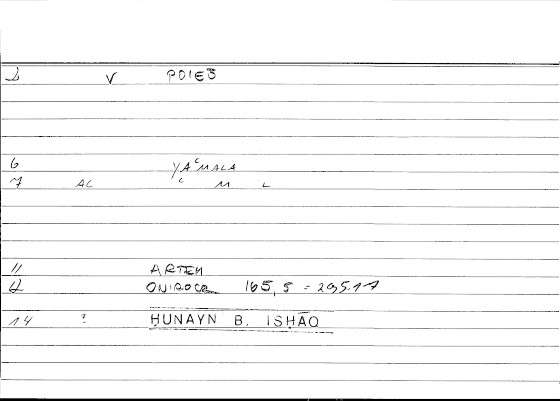 2 V POIEŌ
6 YAʿMALA
7 AC ʿ M L
11 ARTEM
12 ONIROCR 165, 5 = 295.17
14 ? ḤUNAYN B. ISḤĀQ